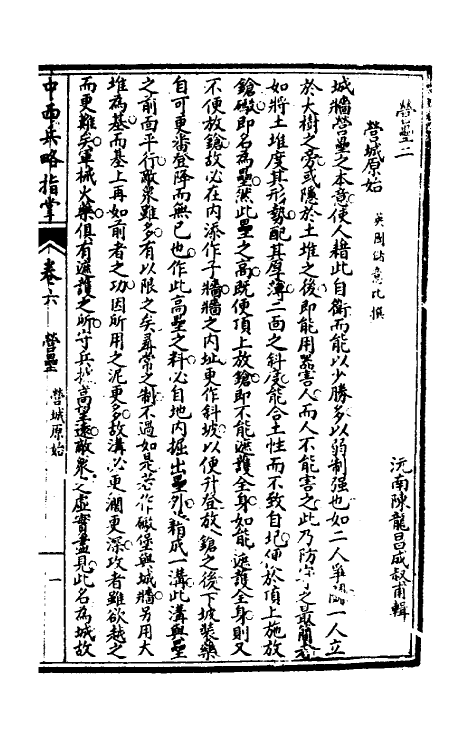 營壘二
沅南陳龍昌成叔甫輯
營城原始
英圖紿意比撰
城牆營壘之本意使人藉此自衞而能以少勝多以弱制强也如二人爭鬬一人立
於大樹之旁或隱於土堆之後即能用器害人而人不能害之此乃防守之最簡者
如將土堆度其形勢配其厚薄二面之斜度能合土性而不致自圮便於頂上施放
鎗礮即名為壘然此壘之高既便頂上放鎗即不能遮護全身如能遮護全身則又
不便放鎗故必在内添作子牆牆之内址更作斜坡以便升登放鎗之後下坡裝藥
自可更番登降而無已也作此高壘之料必自地内掘出壘列藉成一溝此溝與壘
之前面平行敵衆雖多有以限之矣尋常之制不過如是若作礮堡與城牆另用大
堆為基而基上再如前者之功因所用之泥更多故溝必更濶更深攻者雖欲越之
而更難矣軍械火藥俱有遮護之所守兵據高望遠敵衆之虛實盡見此名為城故
中西兵略指掌
卷六
營壘
營城原始
一